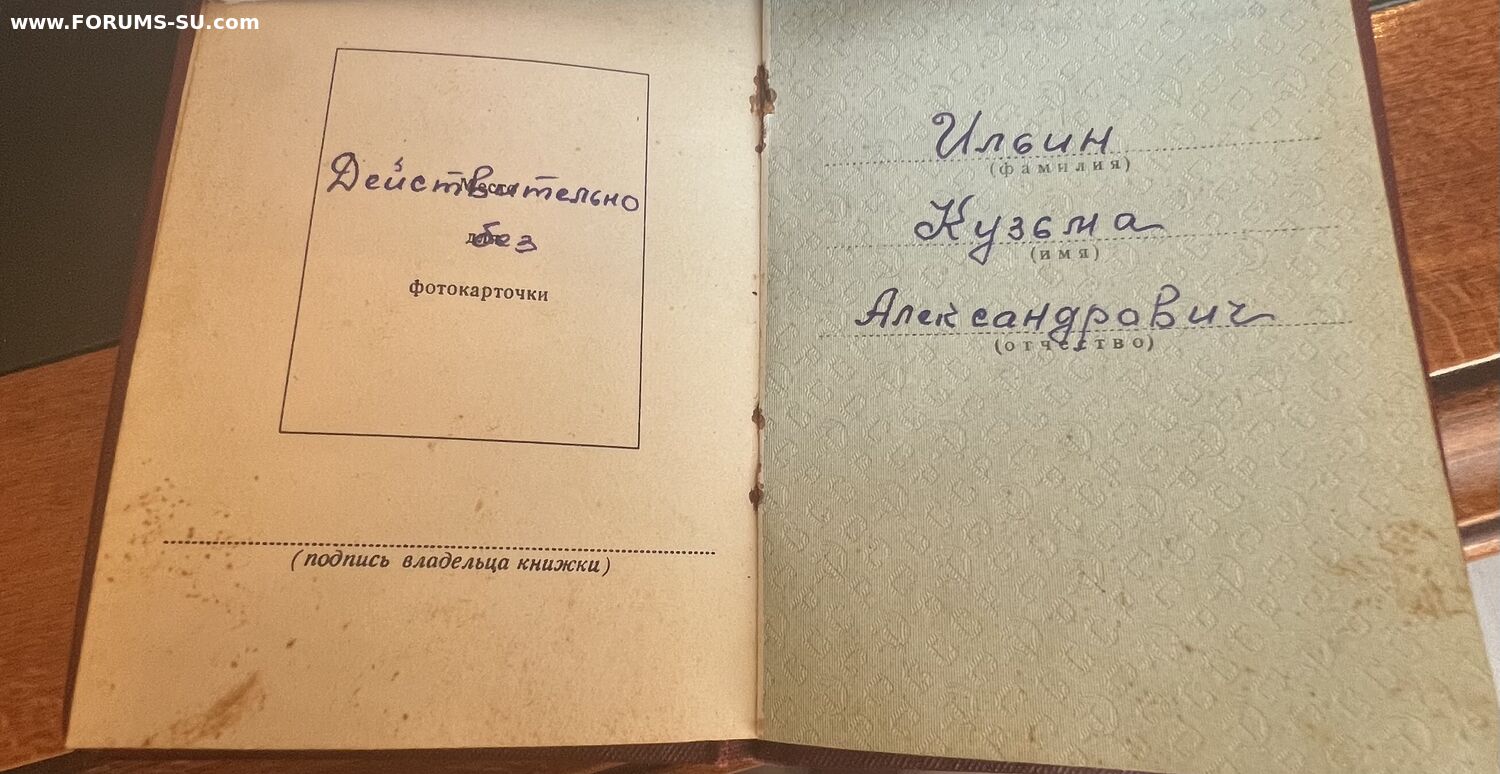 www.FORUMS-SU.com
Действительно
без
фотокарточки
(подпись владельца книжки)
Ильин
(фамилия)
Кузьма
(имя)
Александрович
(отчество)